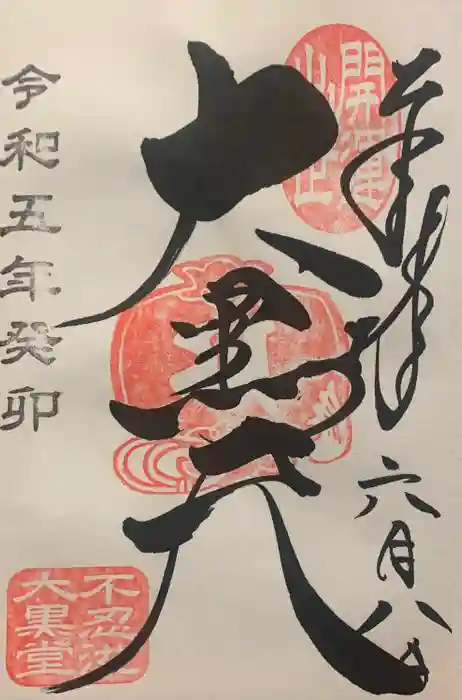 奉拝 六月八日
開運
大黒天
令和五年癸卯
不忍池
大黒堂